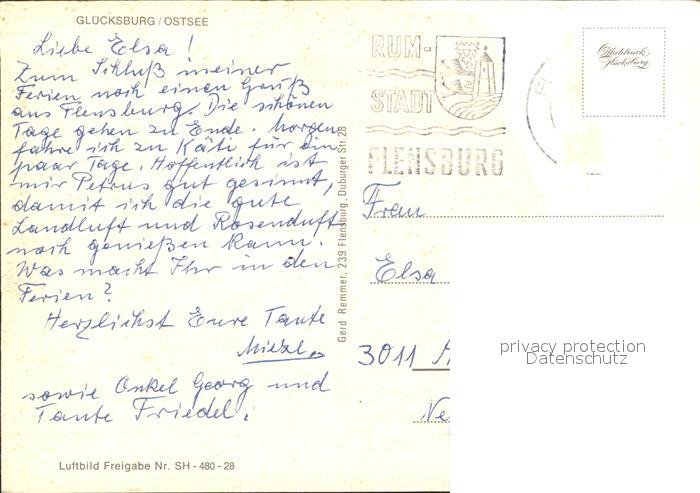 GLÜCKSBURG / OSTSEE
Liebe Elsa!
Zum Schluß meiner
Ferien noch einen Gruß
aus Flensburg. Die schönen
Tage gehen zu Ende. Morgen
fahre ich zu Käti für ein
paar Tage. Hoffentlich ist
mir Petrus gut gesinnt,
damit ich die gute
Landluft und Rosenduft
noch genießen kann.
Was macht Ihr in den
Ferien?
Herzlichst Eure Tante
sowie Onkel Georg und
Tante Friedel.
Luftbild Freigabe Nr. SH - 480 - 28
Gerd Remmer, 239 Flensburg, Duburger Str. 28
RUM-
STADT
FLENSBURG
FL
Glücksburg
Frau
Elsa
3011
Ne
privacy protection
Datenschutz